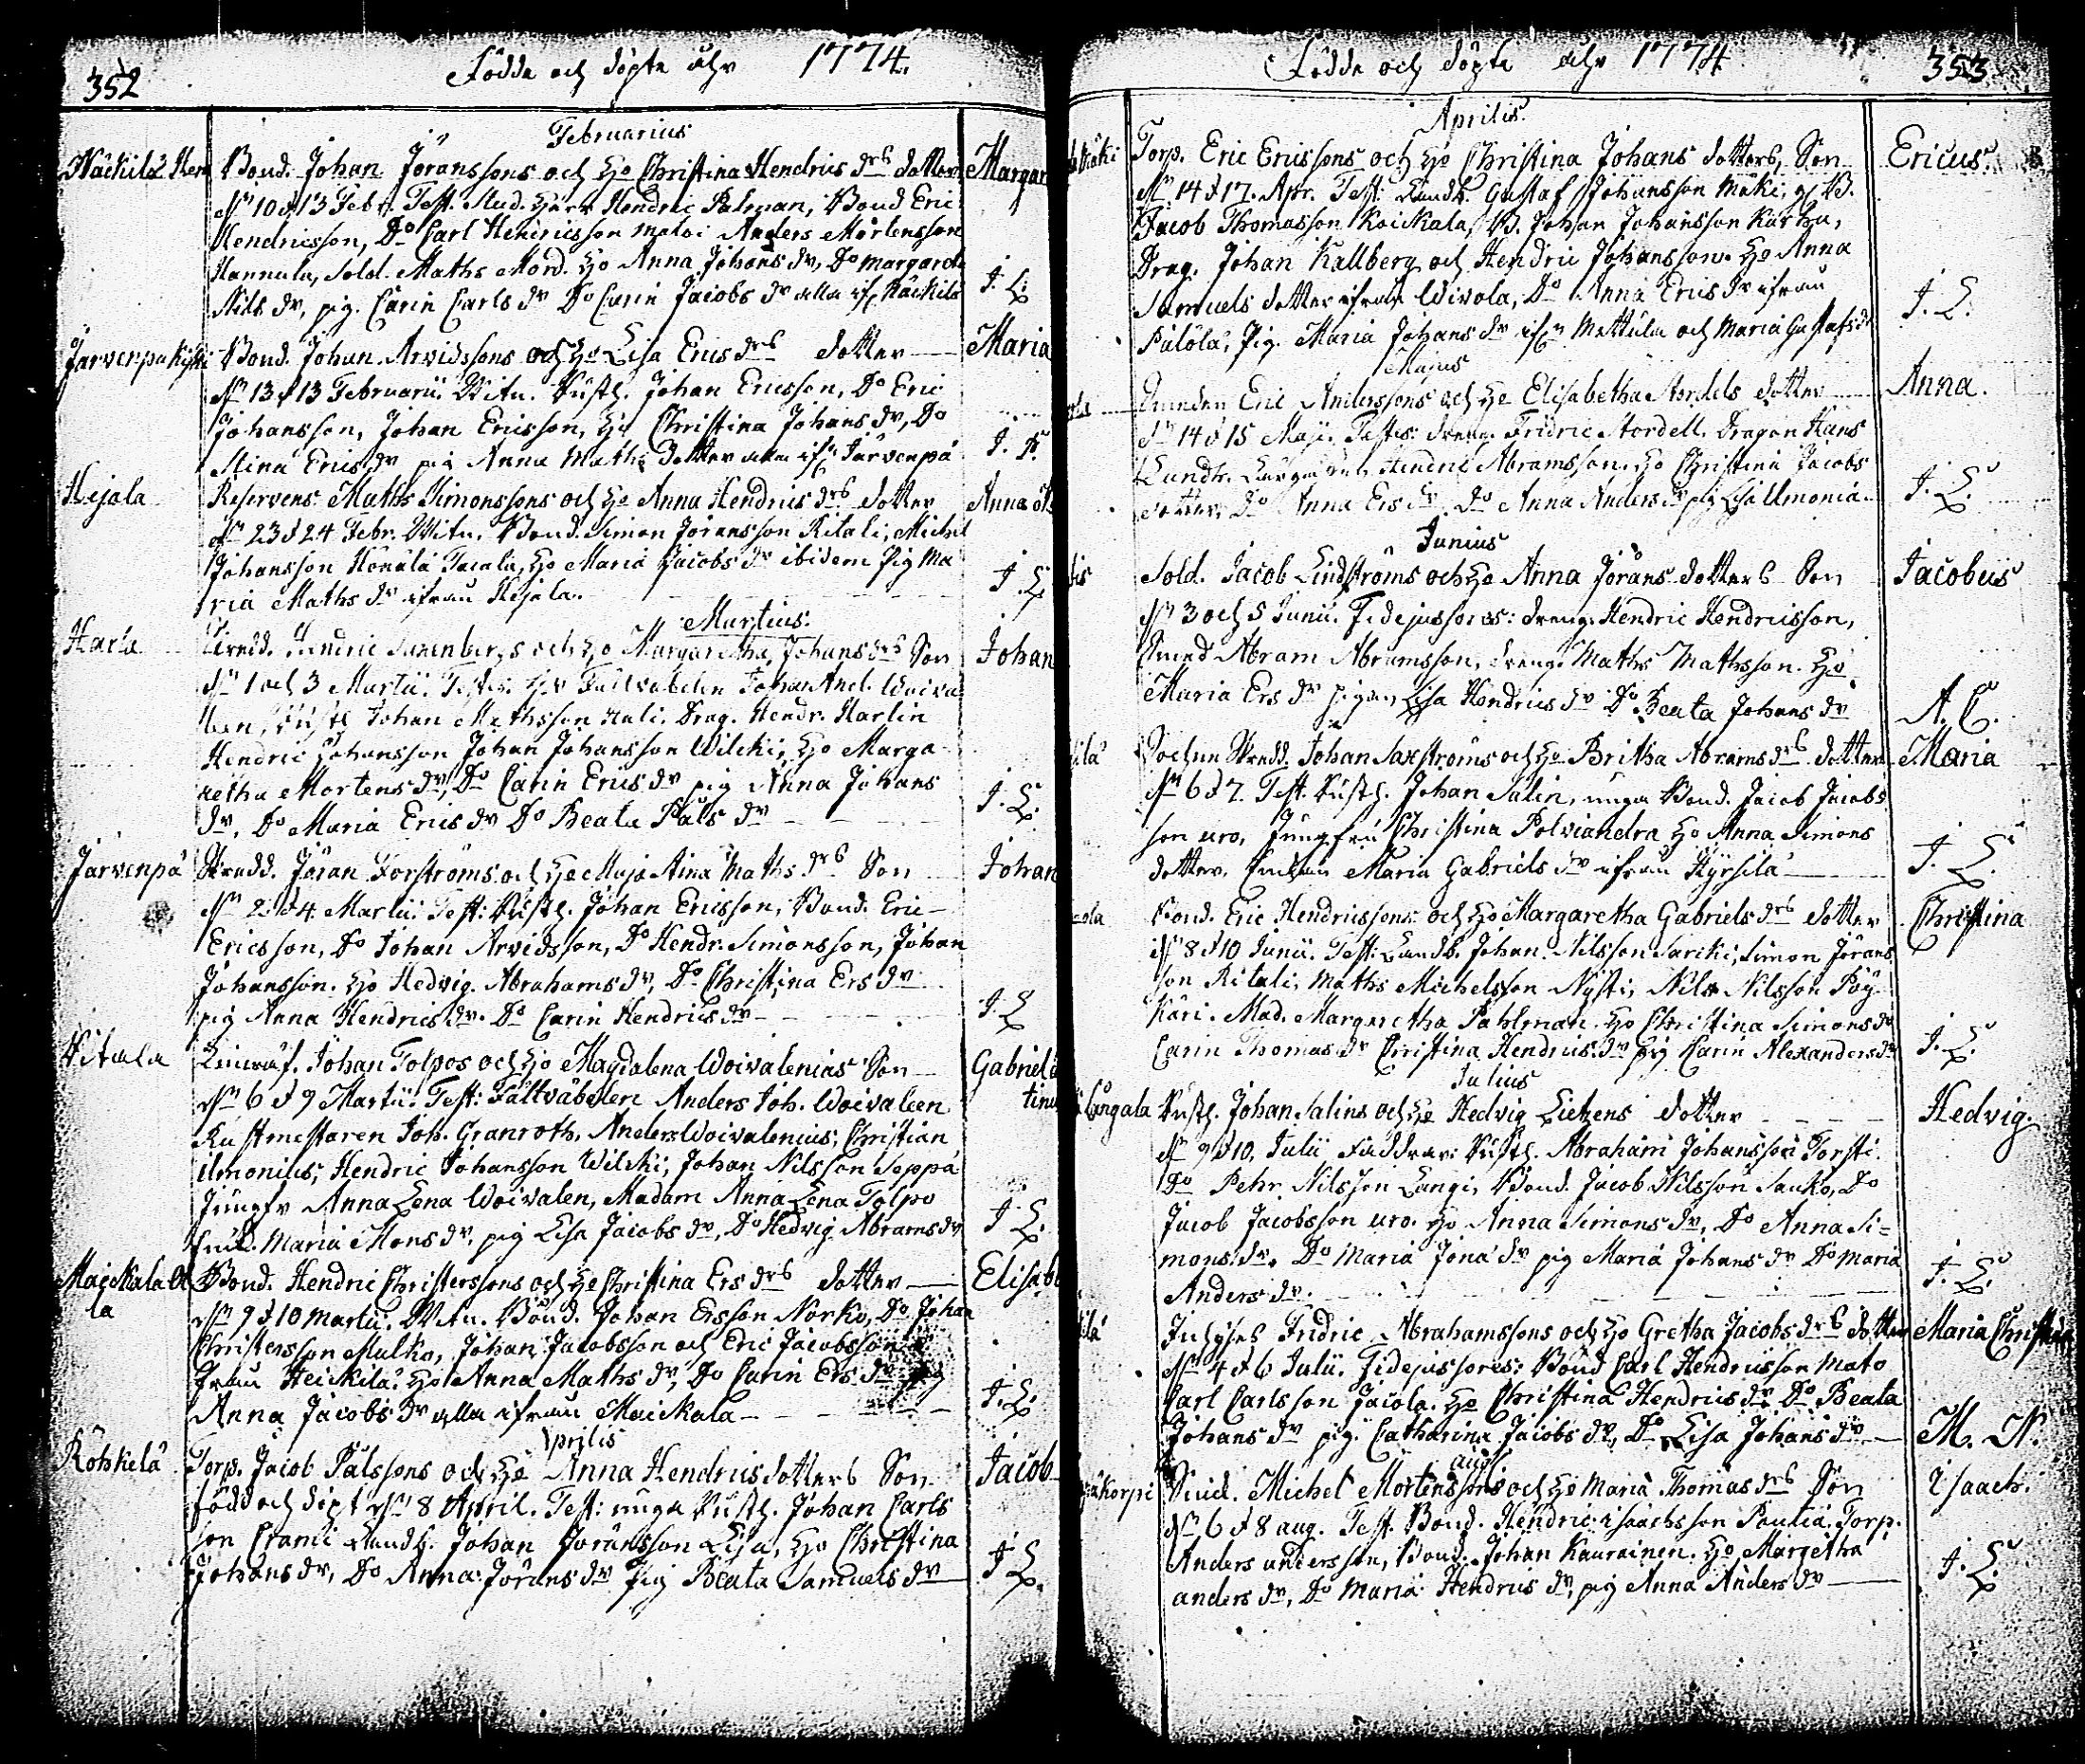 352
Födde och döpte åhr 1774.
Februarius
Näckilä Bond. Johan Joranssons och Ho Christina Hendrics drs dotter Margar
dn 10 d 13 Febr. Test. Stud. Herr Hendric Palman, Bond Eric
Hendricsson, Do Carl Henricsson matoi Anders Mårtensson
Hannula, Sold. Maths Mård. Ho Anna Johans dr, Do margareta
Nils dr, pig. Carin Carls dr Do Carin Jacobs dr alla if. Näckilä J. L.
Järvenpä Bond. Johan Arvidssons och Ho Lisa Erics drs dotter Maria
dn 13 d 13 Februarii. Witn. Rusth. Johan Ericsson, Do Eric
Johansson, Johan Ericsson, Ho Christina Johans dr, Do
Stina Erics dr pig Anna Maths dotter alla ifn Järvenpä J.
Hejala Reservens Maths Simonssons och Ho Anna Hendrics drs dotter Anna
dn 23 d 24 Febr. Witn. Bond. Simon Joransson Ritali, Michel
Johansson Honala Tacala, Ho Maria Jacobs dr ibidem Pig Ma
ria Maths dr ifrån Hejala J. L.
Martius.
Harla Hendric Saxenbergs och Ho Margaretha Johans drs Son Johan
dn 1 och 3 Martii. Testes. Hr Fältväbelen Johan And. Woiva
len, Rusth Johan Mathsson Hali. Drag. Hendr. Harlin
Hendric Johansson Johan Johansson Wilcki, Ho Marga
retha Mortens dr, Do Carin Erics dr pig Anna Johans
dr, Do Maria Erics dr Do Beata Påls dr J. L.
Järvenpä Skredd. Jöran Forströms och Ho Maja Stina Maths drs Son Johan
dn 2 d 4 Martii. Test: Rusth. Johan Ericsson, Bond. Eric
Ericsson, Do Johan Arvidsson, Do Hendr. Simonsson, Johan
Johansson. Ho Hedvig Abrahams dr, Do Christina Ers dr
pig Anna Hendrics dr. Do Carin Hendrics dr J. L.
Vitsala Johan Tolpos och Ho Magdalena Woivalenias Son Gabriel
dn 6 d 9 Martii. Test: Fältväbelen Anders Joh. Woivaleen tinu
Rustmestaren Joh. Granroth, Anders Woivalenius, Christian
ilmonius, Hendric Johansson Wilcki, Johan Nilsson Seppä
Jungfr Anna Lena Woivalen, Madam Anna Lena Tolpo
Maria Mons dr, pig Lisa Jacobs dr, Do Hedvig Abrams dr J. L.
Maickala Bond. Hendric Christerssons och Ho Christina Ers drs dotter Elisab
la dn 9 d 10 Martii. Witn. Bond. Johan Ersson Norko, Do Johan
Christersson Mulko, Johan Jacobsson och Eric Jacobsson
från Heickilä. Ho Anna Maths dr, Do Carin Ers dr pig
Anna Jacobs dr alla ifrån Maickala J. L.
Aprilis
Röhkelä Torp. Jacob Pålssons och Ho Anna Hendrics dotters Son Jacob
född och döpt dn 8 April. Test: unga Rusth. Johan Carls
son Crami Landb. Johan Joransson Lisa, Ho Christina
Johans dr, Do Anna Jörans dr Pig Beata Samuels dr J. L.
Födde och döpte åhr 1774
353
Aprilis.
Torp. Eric Ericssons och Ho Christina Johans dotters Son Ericus.
dn 14 d 17. Apr. Test: Landb. Gustaf Johansson Mäki, B.
Jacob Thomasson Koickala, B. Johan Johansson Karha,
Drag. Johan Kallberg och Hendric Johansson. Ho Anna
Samuels dotter ifrån Wivola, Do Anna Erics dr ifrån J. L.
Palola, Pig. Maria Johans dr ifrn Mattula och Maria Gustafs dr
Majus
Eric Anderssons och Ho Elisabetha Nordels dotter Anna.
dn 14 d 15 Maji. Testes: dreng. Fridric Nordell. Dragon Hans
Lundh. Hendric Abramsson. Ho Christina Jacobs
dotter, Do Anna Ers dr Do Anna Anders dr pig Lisa Ilmonia J. L.
Junius
Sold. Jacob Lindströms och Ho Anna Jörans dotters Son Jacobus
dn 3 och 5 Junii. Fidejussores: dreng. Hendric Hendricsson,
Abram Abramsson, dreng. Maths Mathsson. Ho
Maria Ers dr pigan Lisa Hendrics dr Do Beata Johans dr A. C.
Sochne Skredd. Johan Saxströms och Ho Britha Abrams drs dotter Maria
dn 6 d 7. Test. Rusth. Johan Salin, unga Bond. Jacob Jacobs
son uro, Jungfru Christina Polviandra Ho Anna Simons
dotter, Maria Gabriels dr ifrån Hyrsilä J. L.
Bond. Eric Hendricssons och Ho Margaretha Gabriels drs dotter Christina
dn 8 d 10 Junii. Test: Landb. Johan Nilsson Sariki, Simon Jörans
son Ritali, Maths Michelsson Nysti, Nils Nilsson Pöy
käri. Mad. Margaretha Pahlman. Ho Christina Simons dr
Carin Thomas dr Christina Hendrics dr pig Carin Alexanders dr J. L.
Julius
Långala Rusth. Johan Salins och Ho Hedvig Litzens dotter Hedvig.
dn 9 d 10, Julii Faddrar: Rusth. Abraham Johansson Torsti.
Do Pehr Nilsson Langi, Bond. Jacob Nilsson Sauko, Do
Jacob Jacobsson uro. Ho Anna Simons dr, Do Anna Si=
mons dr. Do Maria Jona dr pig Maria Johans dr Do Maria
Anders dr. J. L.
Inhyses Fridric Abrahamssons och Ho Gretha Jacobs drs dotter Maria Christina
dn 4 d 6 Julii. Fidejussores: Bond Carl Hendricsson Mato
Carl Carlsson Jacola. Ho Christina Hendrics dr Do Beata
Johans dr pig. Catharina Jacobs dr, Do Lisa Johans dr M. N.
aug.
korpi Michel Mortenssons och Ho Maria Thomas drs Son Isaach.
dn 6 d 8 aug. Test. Bond. Hendric isaachsson Pautia, Torp.
Anders andersson, Bond. Johan Kaurainen. Ho Margetha
anders dr, Do Maria Hendrics dr, pig Anna Anders dr J. L.